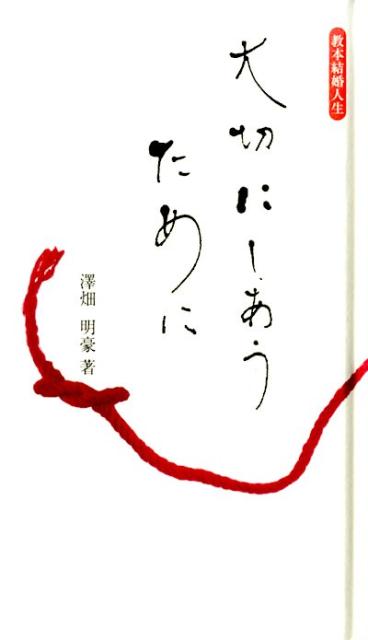 教本結婚人生
大切にしあう
ために
澤畑 明豪 著